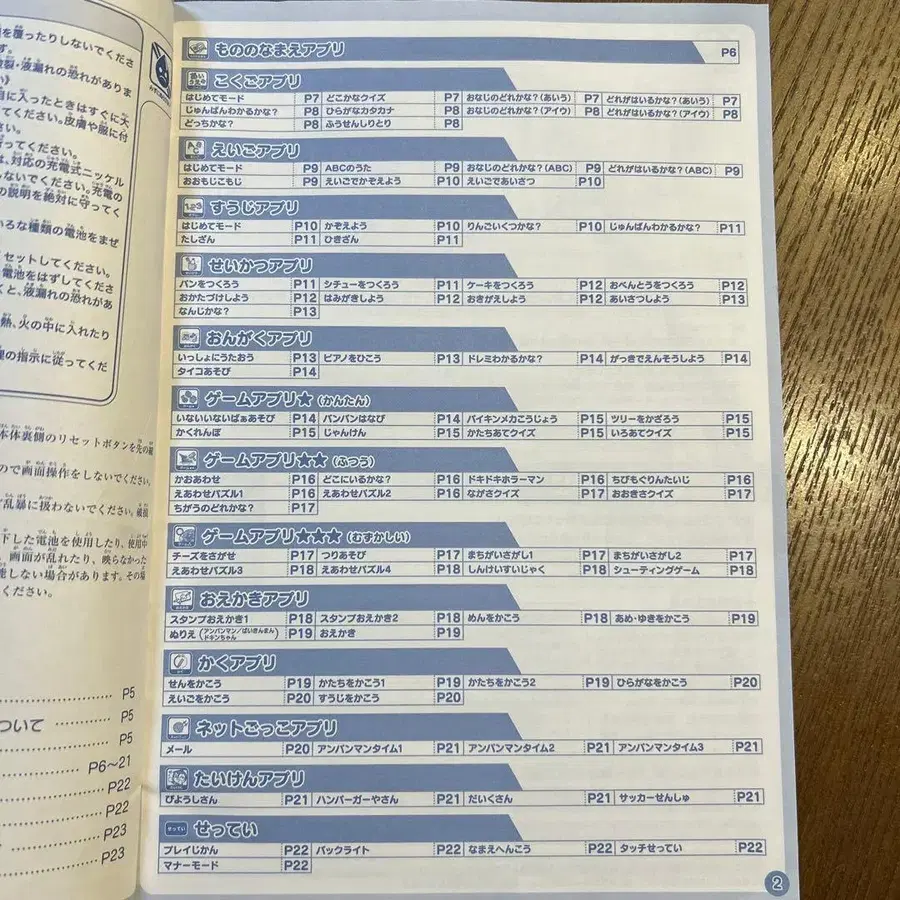 を覆ったりしないでくださ
す。
複製・液漏れの恐れがありま
い》
目に入ったときはすぐに大
てください。皮膚や服に付
さい。
行ってください。
は、対応の充電式ニッケル
ないでください。充電の
の説明を絶対に守ってく
いろな種類の電池をまぜ
くセットしてください。
電池をはずしてくださ
くと、液漏れの恐れがあ
熱、火の中に入れたり
理の指示に従ってくだ
本体裏側のリセットボタンを先の細
ので画面操作をしないでください。
乱暴に扱わないでください。破損
下した電池を使用したり、使用中
、画面が乱れたり、映らなかった
能しない場合があります。その場
ください。
P5
ついて P5
P5
P6～21
P22
P22
P23
P23
もののなまえアプリ P6
こくごアプリ
はじめてモード P7 どこかなクイズ P7 おなじのどれかな?(あいう) P7 どれがはいるかな?(あいう) P7
じゅんばんわかるかな? P8 ひらがなカタカナ P8 おなじのどれかな?(アイウ) P8 どれがはいるかな?(アイウ) P8
どっちかな? P8 ふうせんしりとり P8
えいごアプリ
はじめてモード P9 ABCのうた P9 おなじのどれかな?(ABC) P9 どれがはいるかな?(ABC) P9
おおもじこもじ P9 えいごでかぞえよう P10 えいごであいさつ P10
すうじアプリ
はじめてモード P10 かぞえよう P10 りんごいくつかな? P10 じゅんばんわかるかな? P11
たしざん P11 ひきざん P11
せいかつアプリ
パンをつくろう P11 シチューをつくろう P11 ケーキをつくろう P12 おべんとうをつくろう P12
おかたづけしよう P12 はみがきしよう P12 おきがえしよう P12 あいさつしよう P13
なんじかな? P13
おんがくアプリ
いっしょにうたおう P13 ピアノをひこう P13 ドレミわかるかな? P14 がっきでえんそうしよう P14
タイコあそび P14
ゲームアプリ★(かんたん)
いないいないばぁあそび P14 バンバンはなび P14 バイキンメカこうじょう P15 ツリーをかざろう P15
かくれんぼ P15 じゃんけん P15 かたちあてクイズ P15 いろあてクイズ P15
ゲームアプリ★★(ふつう)
かおあわせ P16 どこにいるかな? P16 ドキドキホラーマン P16 ちびもぐりんたいじ P16
えあわせパズル1 P16 えあわせパズル2 P16 ながさクイズ P17 おおきさクイズ P17
ちがうのどれかな? P17
ゲームアプリ★★★(むずかしい)
チーズをさがせ P17 つりあそび P17 まちがいさがし1 P17 まちがいさがし2 P17
えあわせパズル3 P18 えあわせパズル4 P18 しんけいすいじゃく P18 シューティングゲーム P18
おえかきアプリ
スタンプおえかき1 P18 スタンプおえかき2 P18 めんをかこう P18 あめ・ゆきをかこう P19
ぬりえ(アンパンマン/ばいきんまん/ドキンちゃん) P19 おえかき P19
かくアプリ
せんをかこう P19 かたちをかこう1 P19 かたちをかこう2 P19 ひらがなをかこう P20
えいごをかこう P20 すうじをかこう P20
ネットごっこアプリ
メール P20 アンパンマンタイム1 P21 アンパンマンタイム2 P21 アンパンマンタイム3 P21
たいけんアプリ
びようしさん P21 ハンバーガーやさん P21 だいくさん P21 サッカーせんしゅ P21
せってい せってい
プレイじかん P22 バックライト P22 なまえへんこう P22 タッチせってい P22
マナーモード P22
2